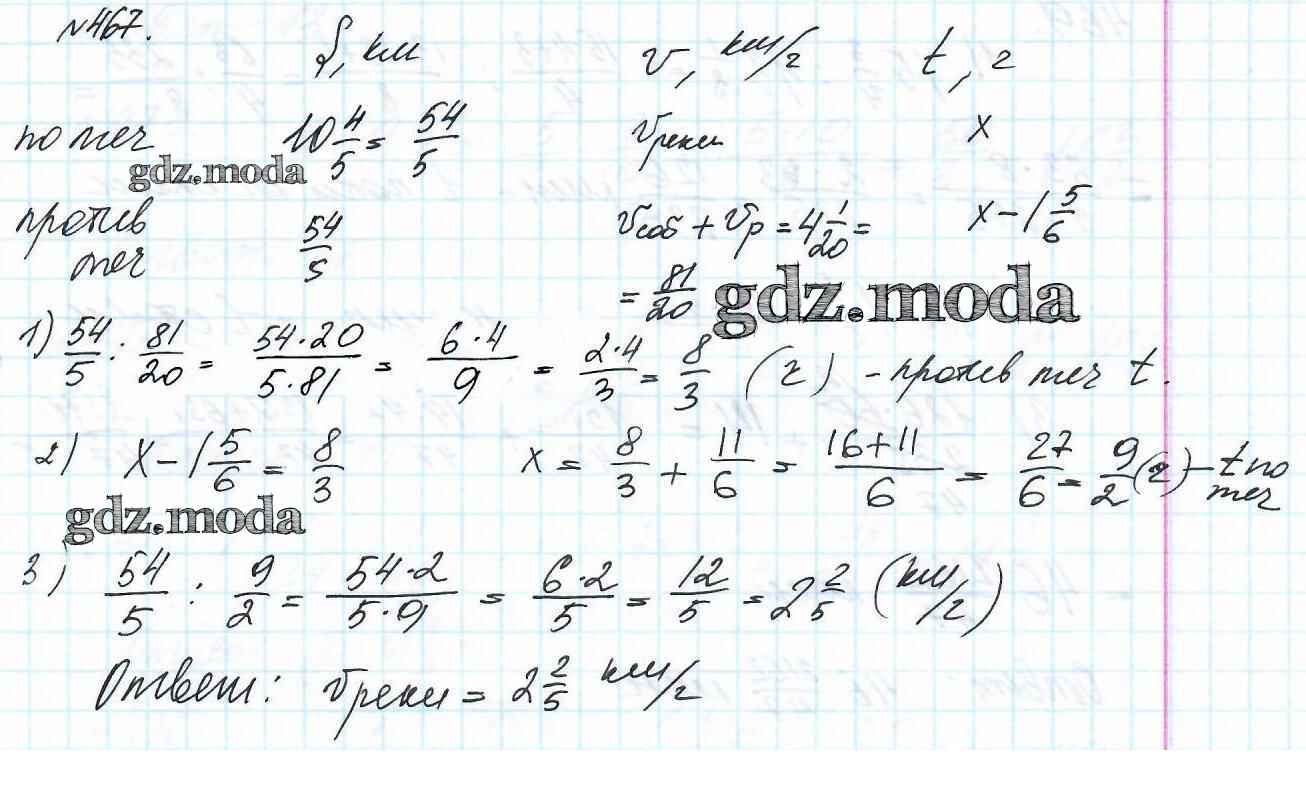 №467.
S, км v, км/г t, г
по теч 10 4/5 = 54/5 vреки x
gdz.moda
против теч 54/5 vсоб + vр = 4 1/20 = x - 1 5/6
= 81/20
gdz.moda
1) 54/5 : 81/20 = 54·20/5·81 = 6·4/9 = 2·4/3 = 8/3 (г) - против теч t.
2) x - 1 5/6 = 8/3 x = 8/3 + 11/6 = 16+11/6 = 27/6 = 9/2 (г) - t по теч
gdz.moda
3) 54/5 : 9/2 = 54·2/5·9 = 6·2/5 = 12/5 = 2 2/5 (км/г)
Ответ: vреки = 2 2/5 км/г